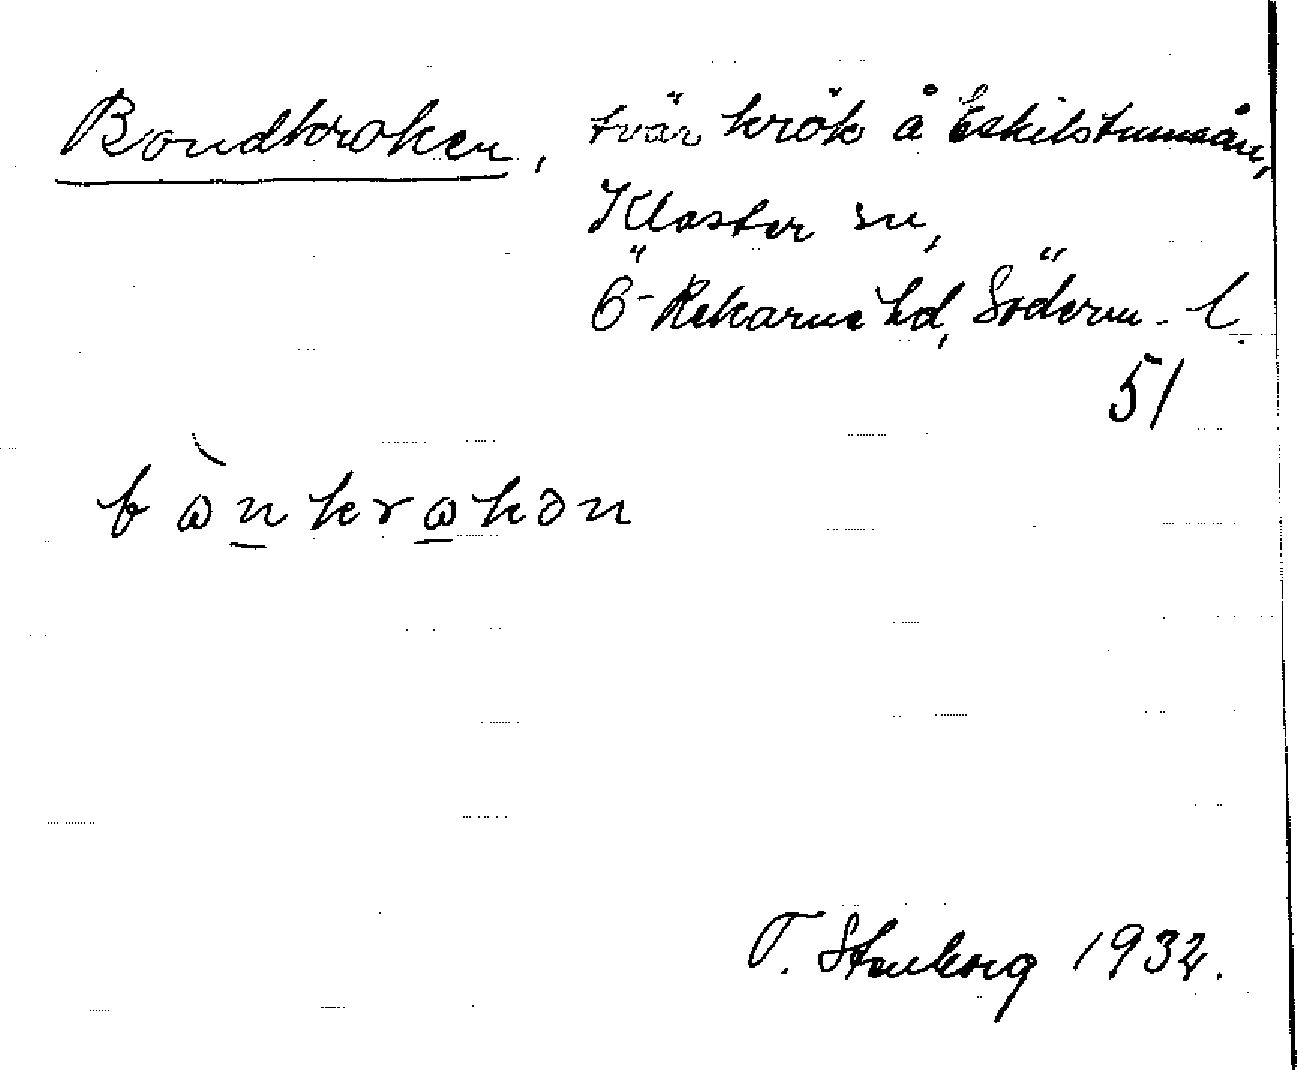 Bondkroken, tvär krök å Eskilstunaån,
Kloster sn,
Ö-Rekarne hd, Söderm. l.
51
bȯ̀nkrokən
T. Stenborg 1932.